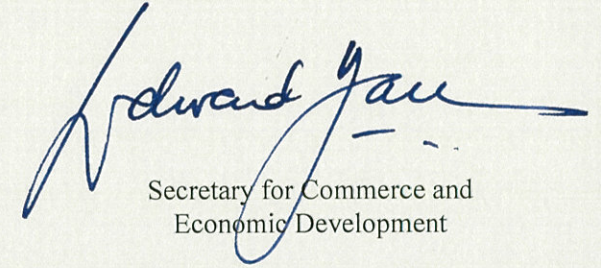 Edward Yau
Secretary for Commerce and
Economic Development